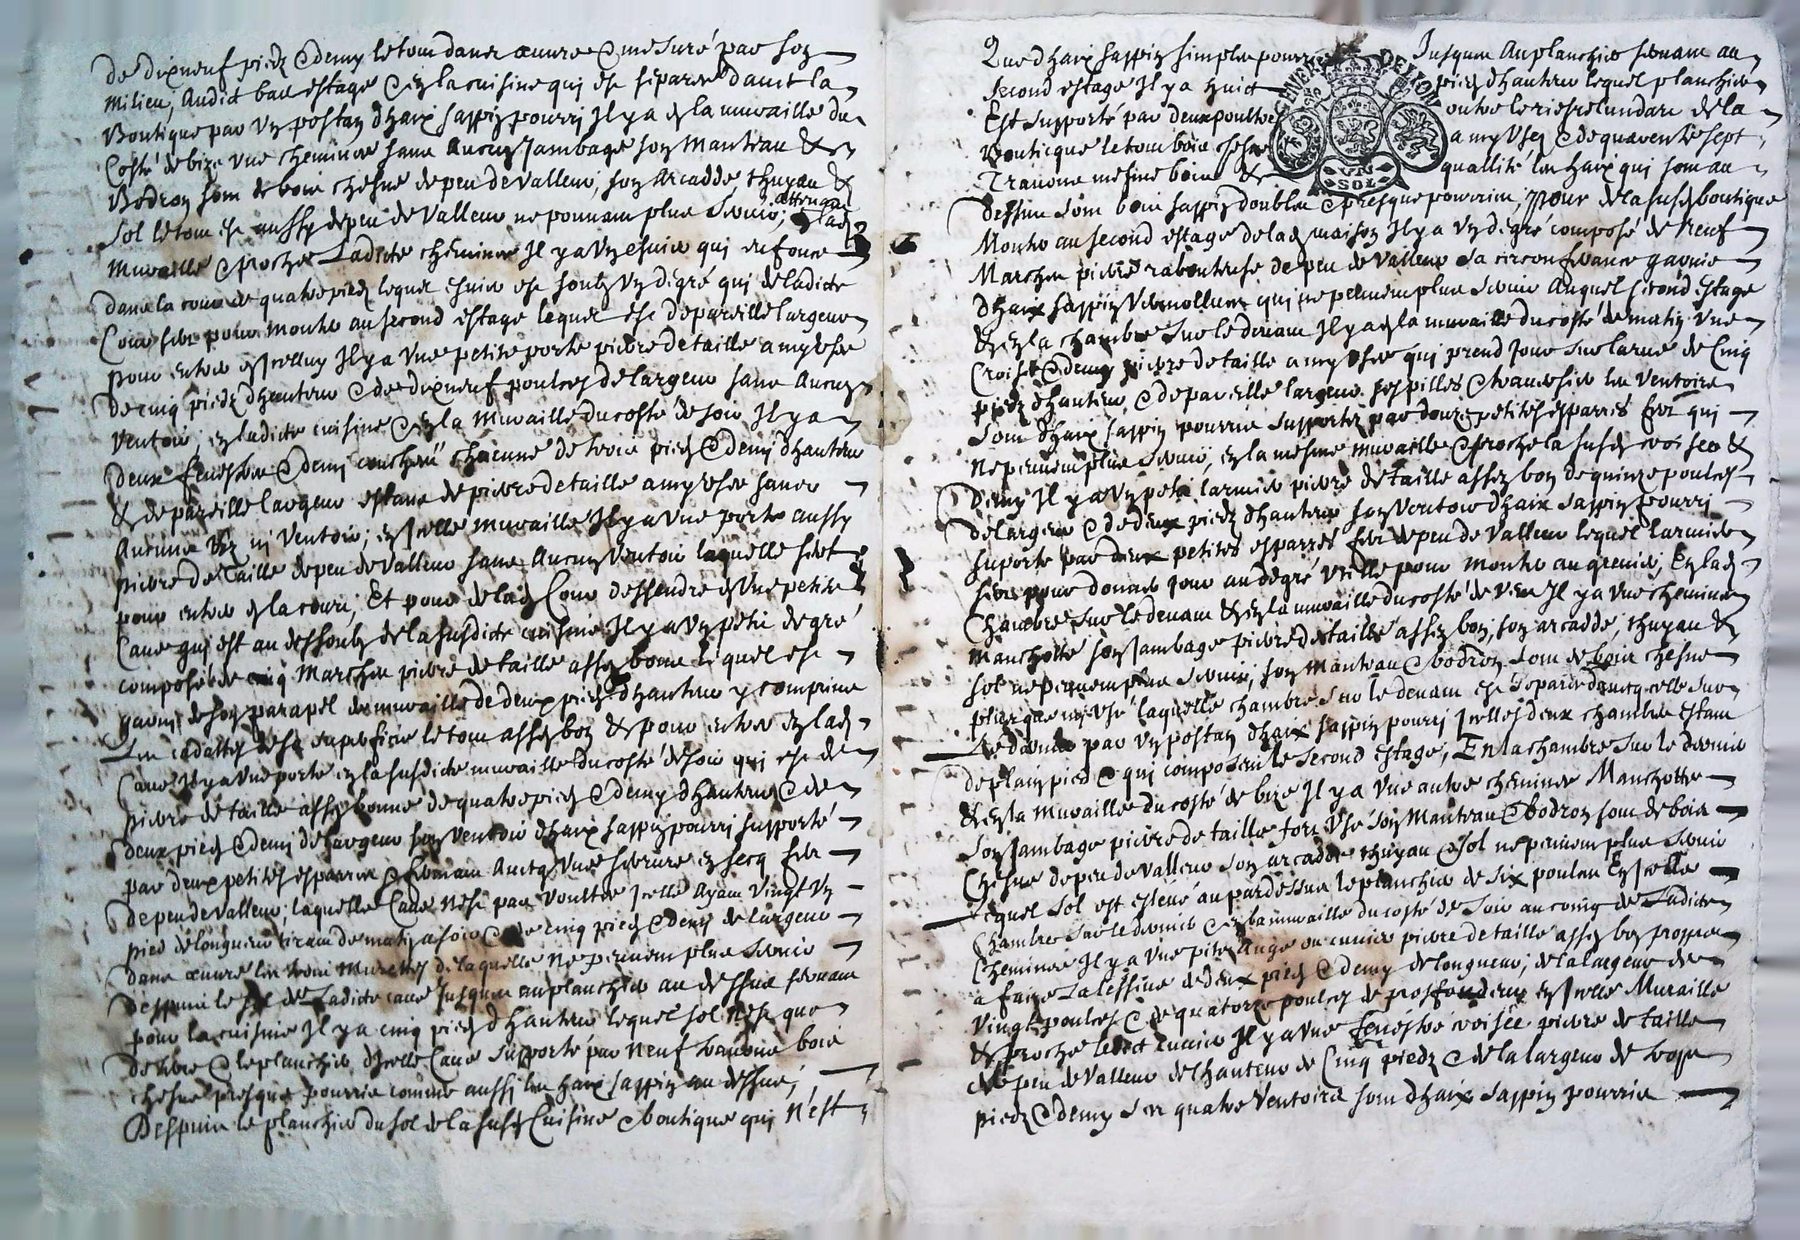 de dixneuf piedz & demy le tout dans œuvre & mesuré par son
milieu, Audict bas estage & en la cuisine qui est separée dauec la
Boutique par un postan d'haix sappin pourri Il y a en la muraille du
Costé de bize vne cheminée sans Aucun Jambage son Manteau &
Bodron sont de bois chesne de peu de valleur, son Arcadde, thuyau &
sol le tout est aussy de peu de valleur ne pouuant plus seruir,
muraille & proche Ladicte cheminée Il y a vn esuier qui enfonce
dans la cour de quatre piedz lequel esuier est soubz vn degré qui de ladicte
Cour sert pour monter au second estage lequel est de pareille largeur
pour entrer en Icelluy Il y a vne petite porte pierre de taille a my vsée
de cinq piedz d'hauteur & de dixneuf poulces de largeur sans Aucun
Ventoir, en ladicte cuisine & en la muraille du costé de soir Il y a
deux fenestres & demy chacune de trois piedz & demy d'hauteur
& de pareille largeur estans de pierre de taille a my vsée sans
Aucune ny Ventoir; en Icelle muraille Il y a vne porte aussy
pierre de Taille de peu de valleur sans Aucun Ventoir laquelle sert
pour entrer en la cour; Et pour de lad. Cour dessendre en vne petite
Caue qui est au dessoubz de la susdicte cuisine Il y a vn petit degré
composé de cinq Marches pierre de taille assez bonne lequel est
garny de son parapel de muraille de deux piedz d'hauteur y comprins
Les cadattes de sa superficie le tout assez bon & pour entrer en lad.
Caue Il y a vne porte en la susdicte muraille du costé de soir qui est de
pierre de taille assez bonne de quatre piedz & demy d'hauteur & de
deux piedz & demy de largeur son ventoir d'haix sappin pourri supporté
par deux petites esparres & fermant Auecq vne serrure
de peu de valleur; laquelle Caue n'est pas Voultée Icelle Ayant Vingt vn
pied de longueur tirant de matin a soir & de cinq piedz & demy de largeur
dans œuvre les trois de laquelle ne peuuent plus seruir
Despuis le sol de Ladicte caue Jusques au planchier au dessus seruant
pour la cuisine Il y a cinq piedz d'hauteur lequel sol n'est que
de terre & le planchier d'Icelle Caue supporté par Neuf trauons bois
chesne presque pourris comme aussi les haix sappin au dessus;
Despuis le planchier du sol de la susd. Cuisine & boutique qui n'est
Que d'haix sappin simples pourris Jusques Au planchier seruant au
second estage Il y a huict piedz d'hauteur lequel planchier
Est supporté par deux poultres outre le de la
Bouticque le tout bois chesne a my vsez & de quarente sept
Trauons mesme bois & quallité les haix qui sont au
GENER DE LYON
VN SOL
dessus sont bois sappin doubles & presque pourris; Pour de la susd. boutique
Monter au second estage de lad. maison Il y a vn degré composé de Neuf
Marches pierre de peu de valleur sa circonferance garnie
d'haix sappin Vermollues qui ne peuuent plus seruir Auquel second estage
& en la chambre sur le deuant Il y a en la muraille du costé de matin vne
Croisée & demy pierre de taille a my vsée qui prend jour sur la rue de Cinq
piedz d'hauteur, & de pareille largeur ses pilles & trauersiers les ventoirs
sont d'haix sappin pourris supportez par douze petites esparres fer qui
ne peuuent plus seruir, en la mesme muraille & proche la susd. croisée &
Demy Il y a vn petit larmier pierre de taille assez bon de quinze poulces
de largeur & de deux piedz d'hauteur son ventoir d'haix sappin pourri
suporté par deux petites esparres fer de peu de valleur lequel larmier
sert pour donner jour au degré vtille pour monter au grenier; En lad.
Chambre sur le deuant & en la muraille du costé de vent Il y a vne cheminée
manchotte son jambage pierre de taille assez bon, son arcadde, thuyau &
sol ne peuuent plus seruir; son manteau & bodron sont de bois chesne
plus que my vsé laquelle chambre sur le deuant est separée d'auecq celle sur
Le derrier par vn postan d'haix sappin pourri Icelles deux chambres estant
de plain pied & qui composent le second estage; En la chambre sur le derrier
& en la muraille du costé de bize Il y a vne autre cheminée Manchotte
son Jambage pierre de taille fort vsé son Manteau & bodron sont de bois
Chesne de peu de valleur son arcadde thuyau & sol ne peuuent plus seruir
lequel sol est esleué au par dessus le planchier de six poulces En Icelle
Chambre sur le derrier & en la muraille du costé de soir au coing de Ladicte
Cheminée Il y a vne Auge ou cuuier pierre de taille assez bon propre
a faire la lessiue de deux piedz & demy de longueur; de la largeur de
Vingt poulces & de quatorze poulces de proffondeur en Icelle Muraille
& proche ledict cuuier Il y a vne fenestre croisée pierre de taille
de peu de valleur de l'hauteur de Cinq piedz & de la largeur de trois
piedz & demy ses quatre Ventoirs sont d'haix sappin pourris